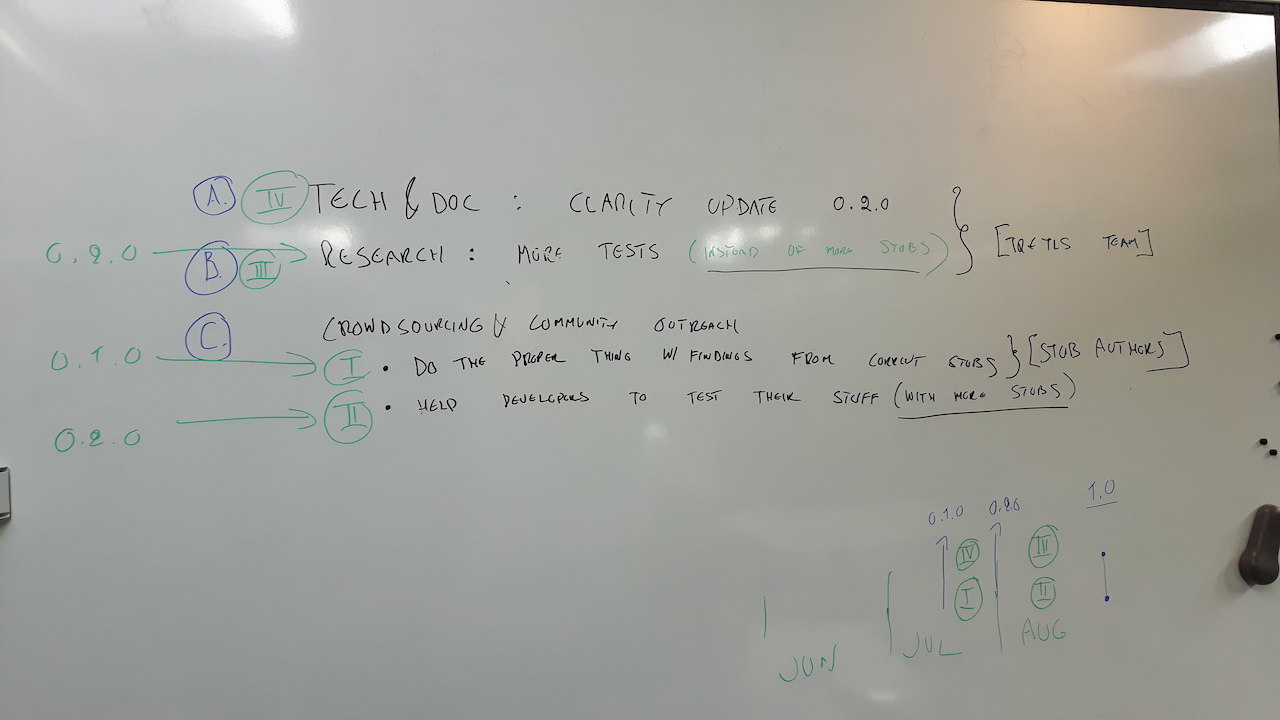 A. IV TECH & DOC : CLARITY UPDATE 0.2.0
0.2.0 B. III RESEARCH : MORE TESTS (INSTEAD OF MORE STUBS) [TRETLS TEAM]
C. CROWDSOURCING & COMMUNITY OUTREACH
0.1.0 I • DO THE PROPER THING W/ FINDINGS FROM CURRENT STUBS [STUB AUTHORS]
0.2.0 II • HELP DEVELOPERS TO TEST THEIR STUFF (WITH MORE STUBS)
0.1.0 0.2.0 1.0
IV III
I II
JUN JUL AUG